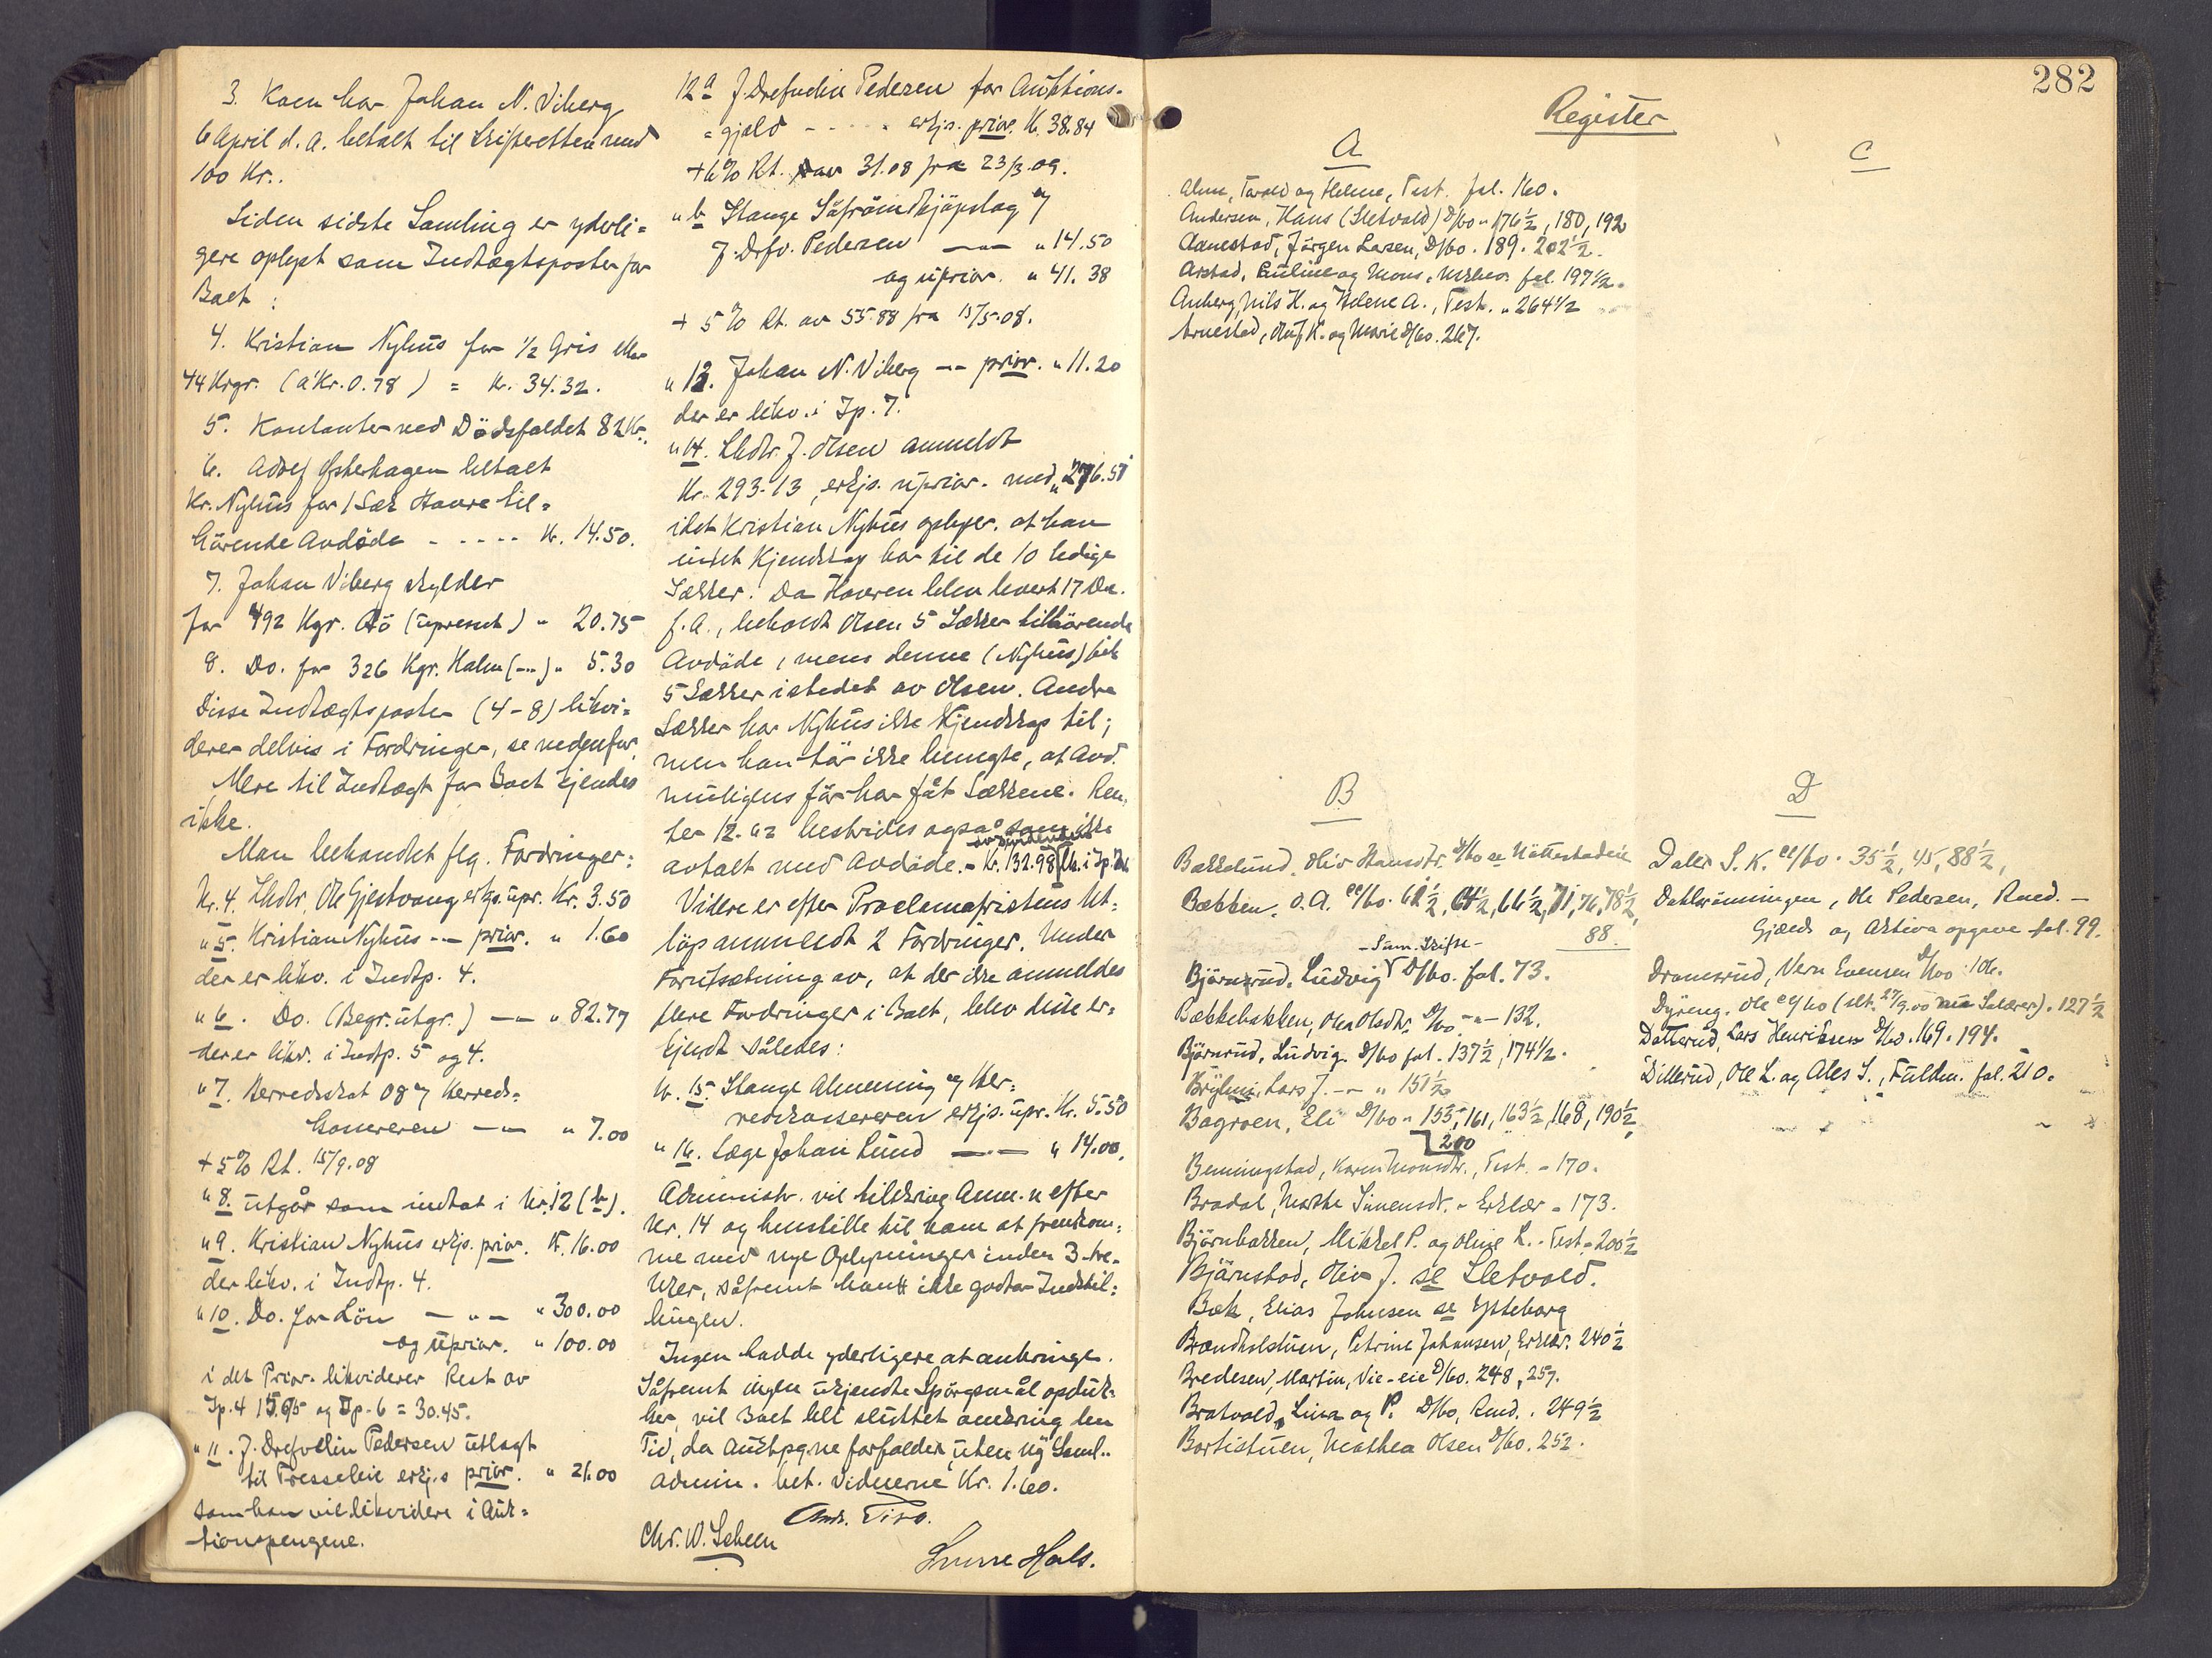 3. Koen har Johan N. Viberg
6 April d. A. betalt til Skifteretten med
100 Kr..
Siden sidste Samling er yderli=
gere oplyst som Indtægtsposter for
Boet :
4. Kristian Nyhus for 1/2 Gris
44 Krgr. (a' Kr. 0.78) = Kr. 34.32.
5. Kontanter ved Dödsfaldet 82 Kr.
6. Adolf Østerhagen betalt
Kr. Nyhus for 1 Sæk Havre til=
hörende Avdöde - - - - - Kr. 14.50.
7. Johan Viberg skylder
for 492 Kgr. Hö (upresset) " 20.75
8. Do. for 326 Kgr. Halm (-"-) " 5.30
Disse Indtægtsposter (4-8) likvi=
deres delvis i Fordringer, se nedenfor.
Mere til Indtægt for Boet kjendes
ikke.
Man behandlet flg. Fordringer:
Nr. 4. Lhdlr. Ole Gjestvang erkjs. upr. Kr. 3.50
" 5. Kristian Nyhus -"- prior. " 1.60
der er likv. i Indtp. 4.
" 6. Do. (Begr. utgr.) -"- " 82.77
der er likv. i Indtp. 5 og 4.
" 7. Herredsskat 08 og Herreds=
kassereren -"- " 7.00
+ 5% Rt. 15/9.08
" 8. utgår som indtat i Nr. 12 (b).
" 9. Kristian Nyhus erkjs. prior. Kr. 16.00
der likv. i Indtp. 4.
" 10. Do. for Lön - " - " 300.00
og uprior. " 100.00
i det Prior. likviderer Rest av
Ip. 4 15.95 og Ip. 6 = 30.45.
" 11. J. Drefvelin Pedersen utlagt
til Tresseleie erkj.s prior. " 21.00
som han vil likvidere i Auk=
tionspengene.
12 a J. Drefvelin Pedersen for Auktions=
=gjæld - - - - erkjs. prior. Kr. 38.84
+ 6% Rt. av 31.08 fra 23/3.09.
" b Stange Såfrömdkjöpslag og
J. Drfv. Pedersen -"- " 14.50
og uprior. " 41.38
+ 5% Rt. av 55.88 fra 15/5.08.
" 13. Johan N. Viberg -"- prior. " 11.20
der er likv. i Ip. 7.
" 14. Lhdlr. J. Olsen anmeldt
Kr. 293.13, erkjs. uprior. med " 276.51
idet Kristian Nyhus oplyser, at han
intet Kjendskap har til de 10 ledige
Sækker. Da Havren blev levert 17 De.
f. A., beholdt Olsen 5 Sækker tilhörende
Avdöde, mens denne (Nyhus) fik
5 Sækker istedet av Olsen. Andre
Sækker har Nyhus ikke Kjendskap til;
men han tör ikke benegte, at Avd.
muligens för har fåt Sækkene. Ren=
ter 12.62 bestrides også som ikke
avtalt med Avdöde. - Kr. 132.98
Videre er efter Proclamafristens Ut=
löp anmeldt 2 Fordringer. Under
Forutsætning av, at der ikke anmeldes
flere Fordringer i Boet, blev disse er=
kjendt således:
Nr. 15. Stange Almenning og Her=
redskassereren erkjs. upr. Kr. 5.50
" 16. Læge Johan Lund -"- " 14.00.
Administr. vil tilskrive Anm. n efter
Nr. 14 og henstille til ham at fremkom=
me med nye Oplysninger inden 3 tre
Uker, såfremt han ikke godtar Indstil=
lingen.
Ingen hadde yderligere at anbringe.
Såfremt ingen ukjendte Spörgsmål opduk=
ker, vil Boet bli sluttet omkring den
Tid, da Auktpgne forfalder, uten ny Saml..
Admin. bet. Vidnerne Kr. 1.60.
Chr. W. Scheen
282
Register
A
Alme, Tarald og Helene, Test. fol. 160.
Andersen, Hans (Sletvold) D/bo " 176 1/2, 180, 192
Aanestad, Jörgen Larsen, D/bo. 189. 202 1/2.
Arstad, Pauline og Mons, fol. 197 1/2.
Anberg, Nils H. og Helene A., Test. " 264 1/2
Arnestad, Oluf K. og Marie D/bo. 267.
C
B
Bækkelund, Oliv Hansdtr. D/bo se Nöttestadeie
Bækken, O. A. ee/bo. 61 1/2, 64 1/2, 66 1/2, 71, 76, 78 1/2,
88.
- Sam. Skifte -
Björnsrud, Ludvig D/bo. fol. 73.
Bækkebakken, Olea Olsdtr. D/bo. -"- 132.
Björnsrud, Ludvig. D/bo fol. 137 1/2, 174 1/2.
Bryhni, Lars J. -"- " 151 1/2
Bagroen, Eli D/bo " 153, 161, 163 1/2, 168, 190 1/2,
200
Benningstad, Karen Monsdtr., Test. - 170.
Bradal, Marthe Simensdtr. - Erklær - 173.
Björnbakken, Mikkel P. og Oline L. - Test - 200 1/2
Björnstad, Oliv J. se Sletvold.
Bæk, Elias Johnsen se Ysteborg
Brændholstuen, Petrine Johansen, Erklær. 240 1/2
Bredesen, Martin, Vie-eie D/bo. 248, 257.
Bratvold, Lina og P. D/bo, Rmd. . 249 1/2
Bortistuen, Mathea Olsen D/bo. 252.
D
Daler S. K. ee/bo. 35 1/2, 45, 88 1/2,
Dahlsrönningen, Ole Pedersen, Rmd. -
Gjælds og Aktiva opgave fol. 99.
Dramsrud, Vern Evensen D/bo. 106.
Dyreng, Ole ee/bo (slt. 27/9.00 Salærer). 127 1/2
Datterud, Lars Henriksen D/bo. 169. 194.
Dillerud, Ole L. og Ales S., Fuldm. fol. 210.